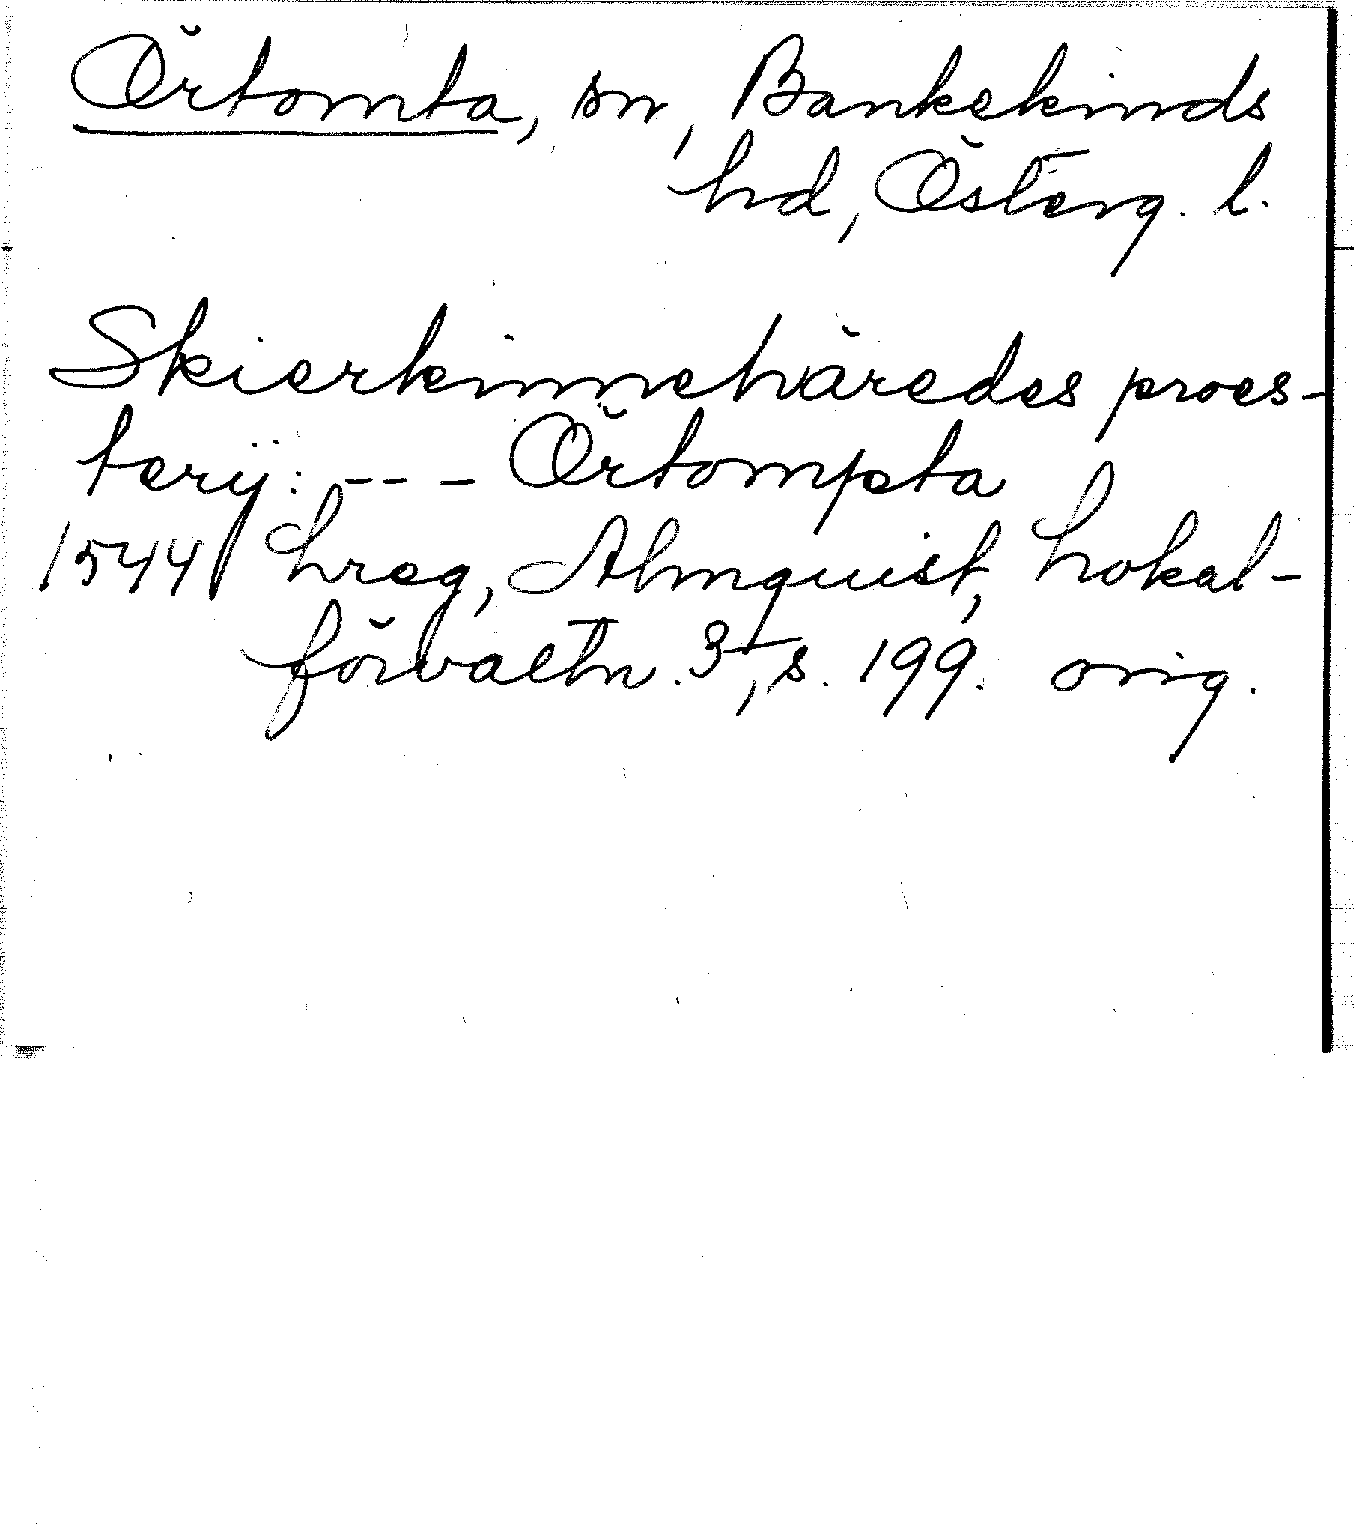 Örtomta, sn, Bankekinds
hd, Österg. l.
Skierkinnehäredes proes-
terÿ: --- Örtompta
1544 hreg, Almquist, Lokal-
förvaltn. 3, s. 199. orig.